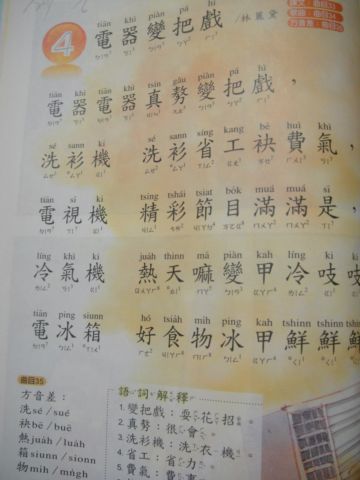 課文：曲目33
歌曲：曲目34
方音差：曲目35
4
tiān khì piàn pá hì
電器變把戲
/林麗黛
tiān khì tiān khì tsin gâu piàn pá hì
電器電器真勢變把戲，
sé sann ki sé sann síng kang bē huì khì
洗衫機 洗衫省工袂費氣，
tiān sī ki tsing tshái tsiat bo̍k muá muá sī
電視機 精彩節目滿滿是，
líng khì ki jua̍h thinn mā piàn kah líng ki ki
冷氣機 熱天嘛變甲冷吱吱
tiān ping siunn hó tsia̍h mi̍h ping kah tshinn tshinn tshinn
電冰箱 好食物冰甲鮮鮮鮮
曲目35
方音差：
洗sé / sué
袂bē / buē
熱jua̍h / lua̍h
箱siunn / sionn
物mih / mn̍gh
語詞解釋
1.變把戲：耍花招
2.真勢：很會
3.洗衫機：洗衣機
4.省工：省力
5.費氣：費事